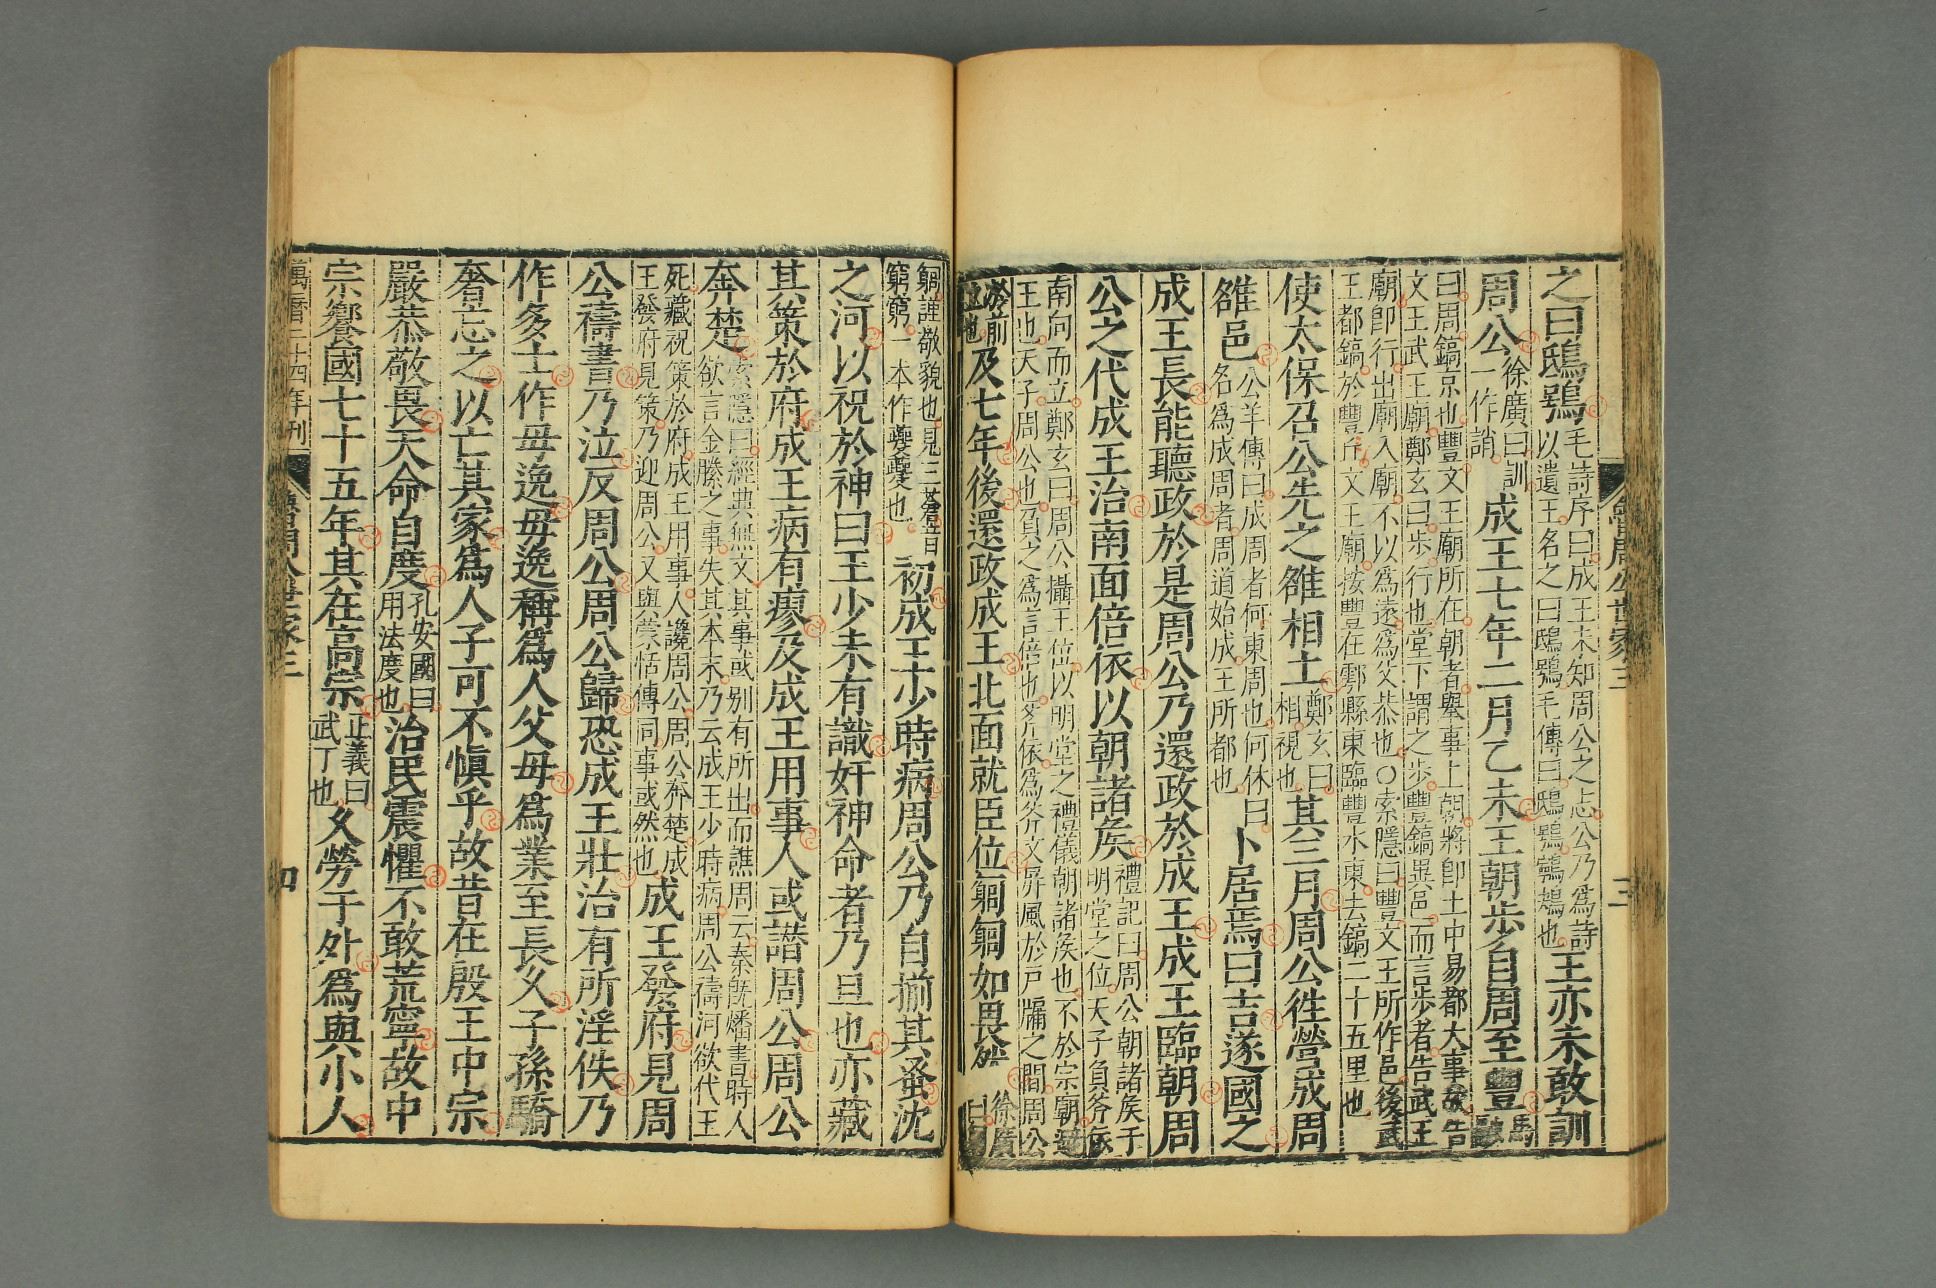 魯周公世家三
三
之曰鴟鴞
毛詩序曰成王未知周公之志公乃爲詩
以遺王名之曰鴟鴞毛傳曰鴟鴞鸋鴂也
王亦未敢訓
周公
徐廣曰訓
一作誚
成王七年二月乙未王朝步自周至豐
馬融
曰周鎬京也豐文王廟所在朝者舉事上朝將即土中易都大事故告
文王武王廟鄭玄曰步行也堂下謂之步豐鎬異邑而言步者告武王
廟即行出廟入廟不以爲遠爲父恭也○索隱曰豐文王所作邑後武
王都鎬於豐立文王廟按豐在鄠縣東臨豐水東去鎬二十五里也
使太保召公先之雒相土
鄭玄曰
相視也
其三月周公往營成周
雒邑
公羊傳曰成周者何東周也何休曰
名爲成周者周道始成王所都也
卜居焉曰吉遂國之
成王長能聽政於是周公乃還政於成王成王臨朝周
公之代成王治南面倍依以朝諸矦
禮記曰周公朝諸矦于
明堂之位天子負斧依
南向而立鄭玄曰周公攝王位以明堂之禮儀朝諸矦也不於宗廟避
王也天子周公也負之爲言倍也斧依爲斧文屏風於戶牖之間周公
於前
立也
及七年後還政成王北面就臣位匔匔如畏然
徐廣
曰
匔謹敬貌也見三蒼音
窮窮一本作夔夔也
初成王少時病周公乃自揃其蚤沈
之河以祝於神曰王少未有識奸神命者乃旦也亦藏
其策於府成王病有瘳及成王用事人或譖周公周公
奔楚
索隱曰經典無文其事或别有所出而譙周云秦旣燔書時人
欲言金縢之事失其本末乃云成王少時病周公禱河欲代王
死藏祝策於府成王用事人讒周公周公奔楚成
王發府見策乃迎周公又與蒙恬傳同事或然也
成王發府見周
公禱書乃泣反周公周公歸恐成王壯治有所淫佚乃
作多士作毋逸毋逸稱爲人父母爲業至長久子孫驕
奢忘之以亡其家爲人子可不愼乎故昔在殷王中宗
嚴恭敬畏天命自度
孔安國曰
用法度也
治民震懼不敢荒寧故中
宗饗國七十五年其在高宗
正義曰
武丁也
久勞于外爲與小人
萬曆二十四年刊
魯周公世家三
四